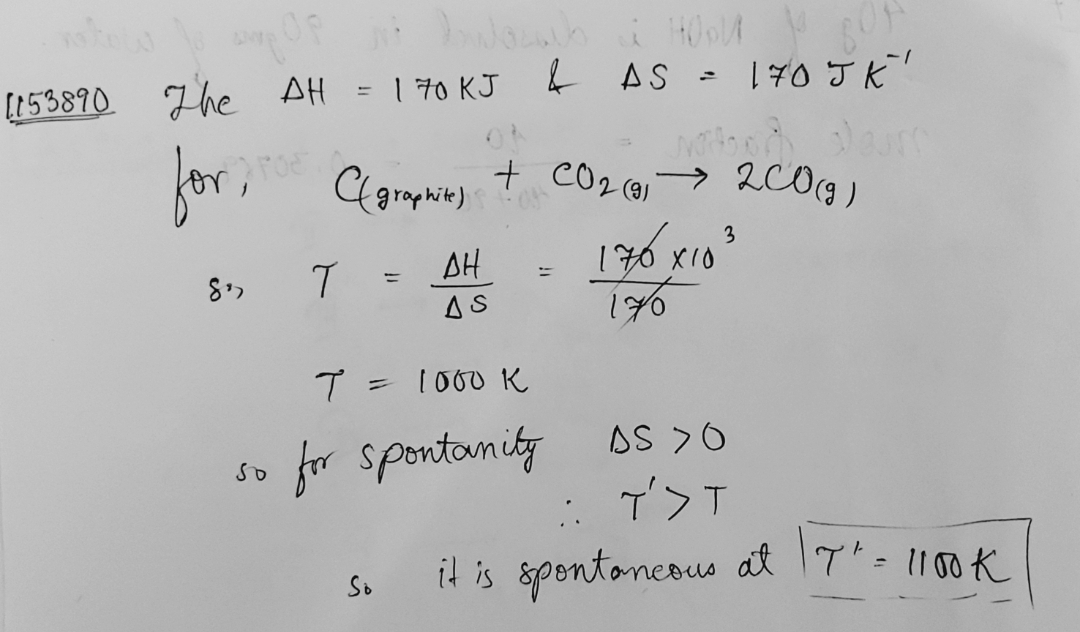 1153890 The ΔH = 170 KJ & ΔS = 170 J K⁻¹
for, C(graphite) + CO₂(g) → 2CO(g)
so, T = ΔH/ΔS = 170 x10³/170
T = 1000 K
so for spontanity ΔS > 0
∴ T' > T
so it is spontaneous at T' = 1100 K